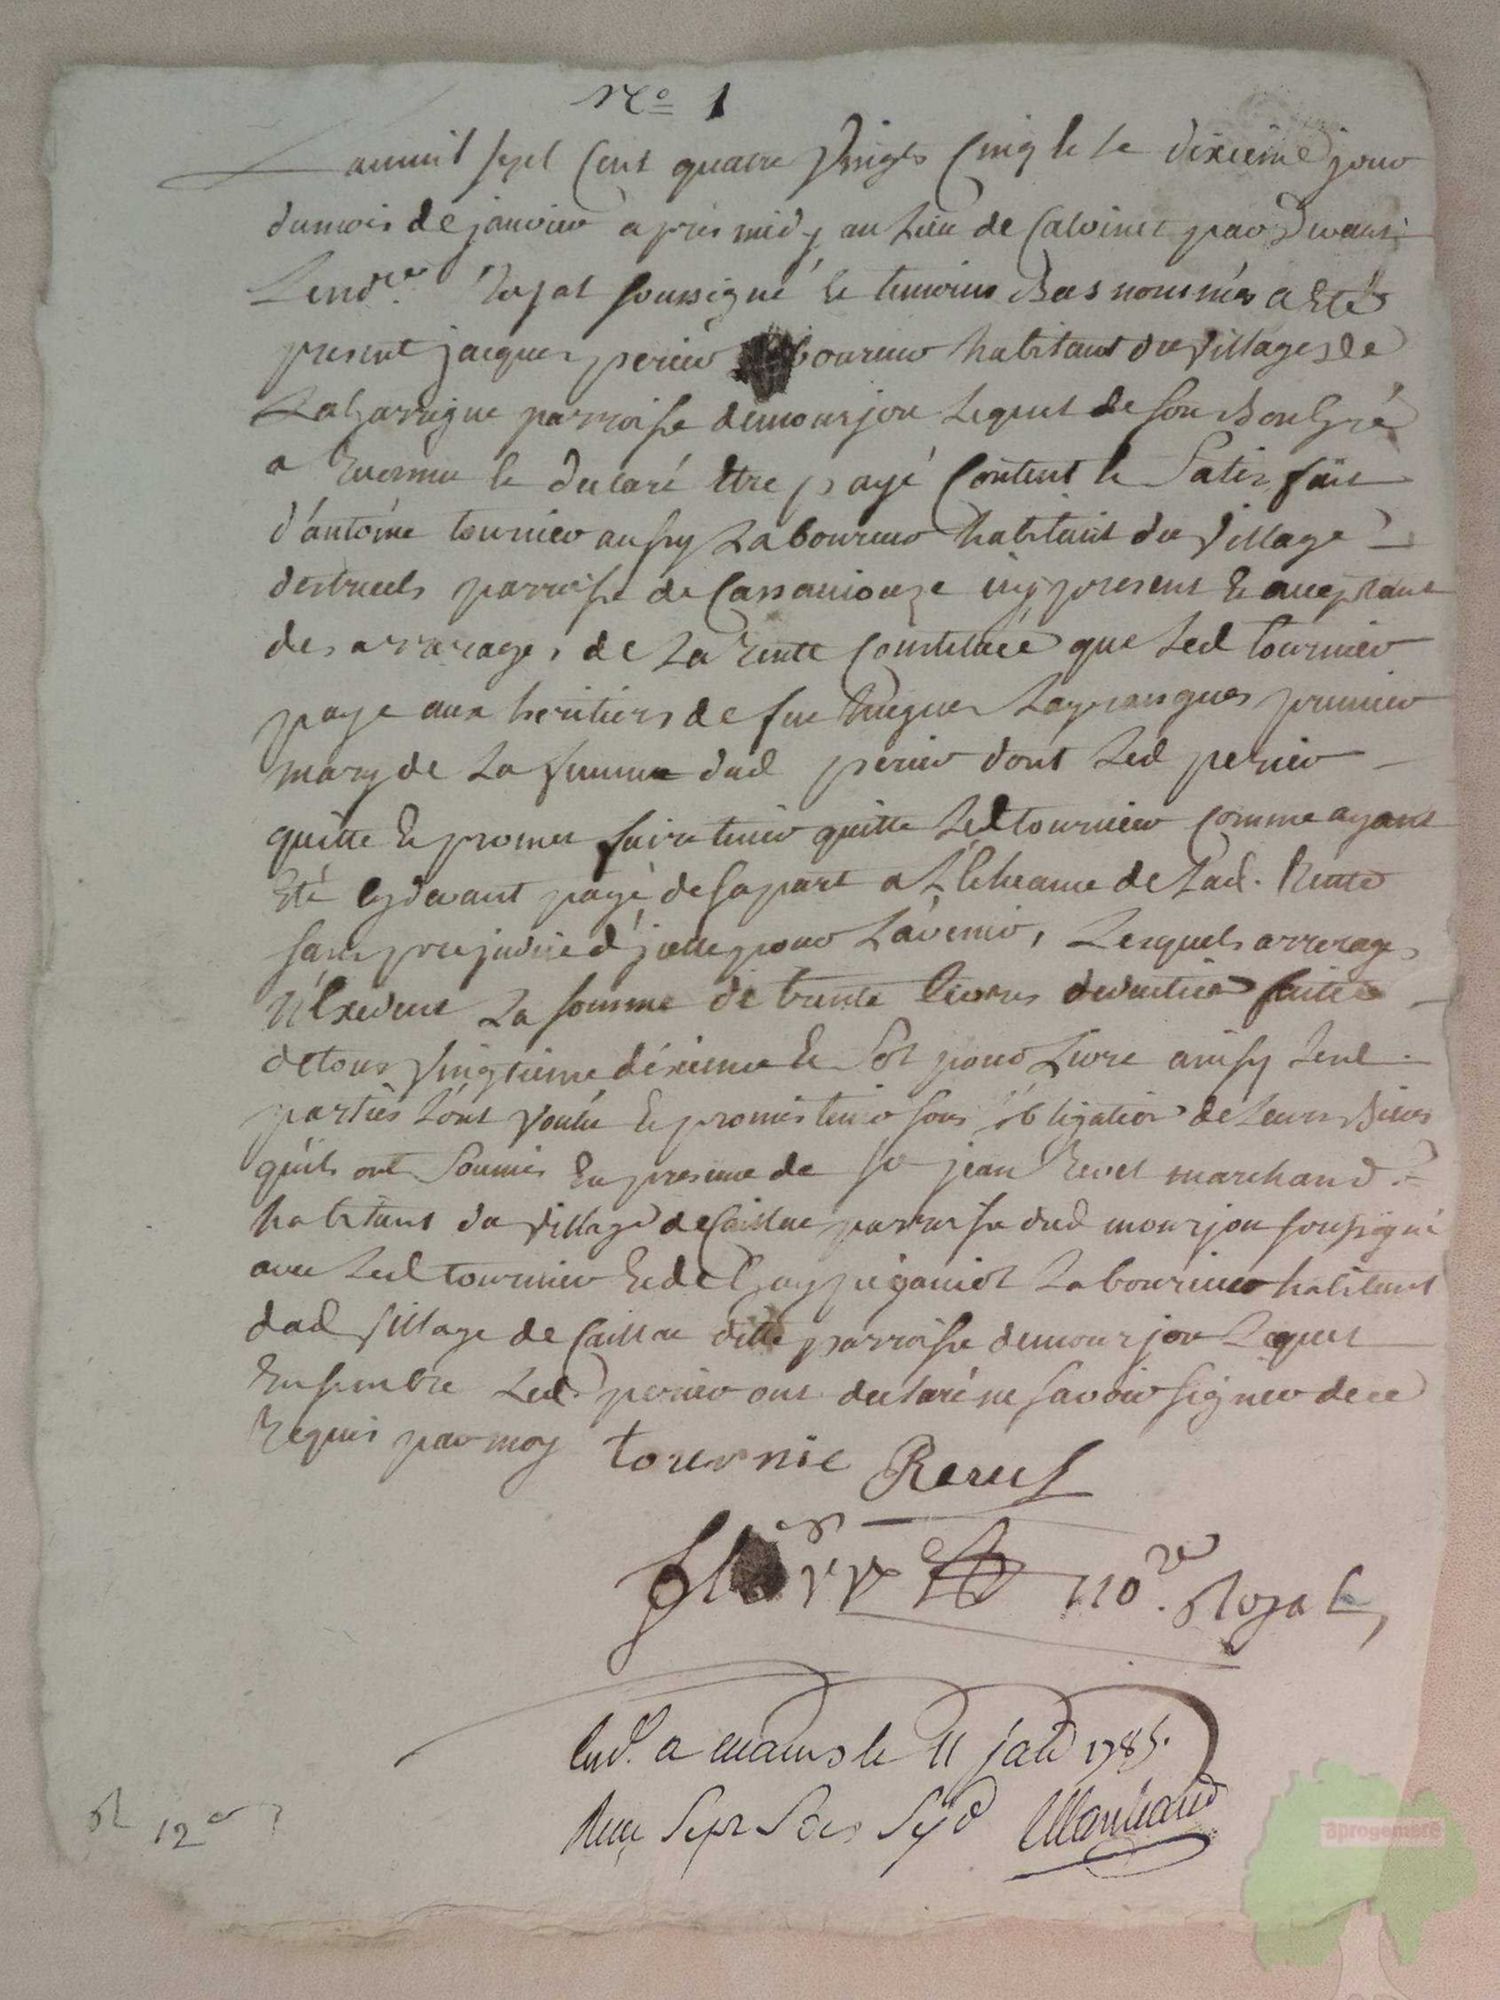 N.º 1
Lan mil sept Cent quatre Vingts Cinq & le dixieme jour
du mois de janvier apres midy au Lieu de Calvinet par Devant
Le no.re Royal soussigné & temoins Bas nommés a Eté
present jacques perier laboureur habitant du village de
Lagarrigue parroisse de mourjou Lequel de son Bon Gré
a Reconnu & declaré Etre payé Content & Satisfait
d'antoine tournier aussy Laboureur habitant du village
destruels parroisse de Cassaniouze icy present & acceptant
des arrerages de La rente Constituée que Led tournier
paye aux heritiers de feu hugues premier
mary de La femme dud perier dont Led perier
quitte & promet faire tenir quitte Led tournier Comme ayant
Eté cy devant payé de sa part a L'Echeance de Lad. Rente
sans prejudice d'jcelle pour L'avenir, Lesquels arrerages
N'Exedent La somme de trente livres deduction faite
de tous vingtieme dixieme & Sol pour Livre ainsy Led.
parties L'ont voulu & promis tenir sous l'obligation de Leurs Biens
qu'ils ont Soumis En presence de sr jean Revel marchand
habitant du village de Caillac parroisse dud mourjou soussigné
avec Led tournier & de Guy piganiol Laboureur habitant
dud village de Caillac ditte parroisse de mourjou Lequel
Ensemble Led perier ont declaré ne savoir signer de ce
Requis par moy tournie Revel
no.re Royal,
le 11 janv 1785.
Recu Sept Sols Marchand
12
aprogemere